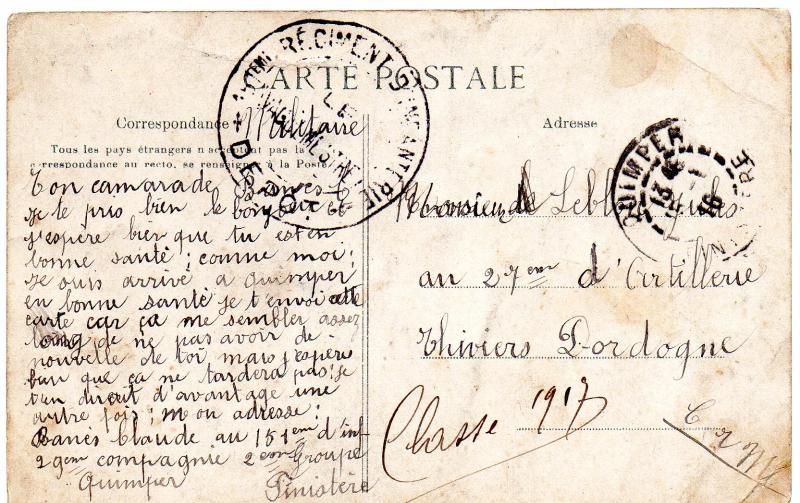 RÉGIMENT D'INFANTERIE
LE
VAGUEMESTRE
DÉPÔT
CARTE POSTALE
Correspondance
Militaire
Tous les pays étrangers n'acceptent pas la
correspondance au recto, se renseigner à la Poste
Adresse
QUIMPER
13
16
FINISTÈRE
Ton camarade Banès C
je te pris bien le bonjour et
j'espère bien que tu est en
bonne santé; comme moi;
Je suis arrivé a Quimper
en bonne santé je t'envoi cette
carte car ça me sembler assez
long de ne pas avoir de
nouvelle de toi, mais j'espere
bien que ça ne tardera pas; je
t'en dirait d'avantage une
autre fois; mon adresse:
Banès Claude au 151em d'inf
29em compagnie 2em Groupe
Quimper Finistère
Monsieur Jules
au 27em d'Artillerie
Thiviers Dordogne
Classe 1917